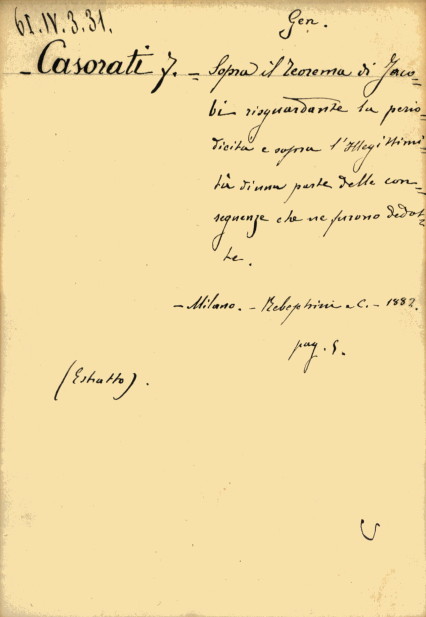 61.IV.3.31.
Gen.
Casorati F. = Sopra il Teorema di Jaco=
bi risguardante la perio=
dicità e sopra l'Illegittimi=
tà di una parte delle con=
seguenze che ne furono dedot=
te.
- Milano. - e C. - 1882.
pag. 5.
(Estratto).